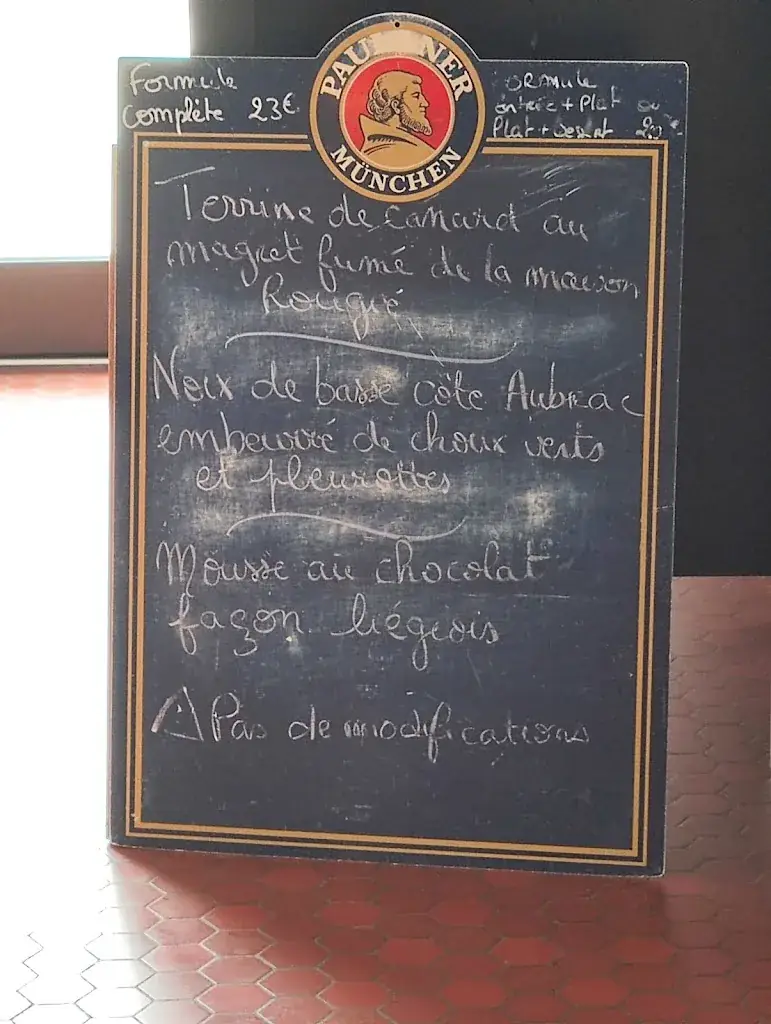 Formule
complète 23€
PAU NER
MÜNCHEN
ormule
entrée + Plat ou
Plat + Dessert
Terrine de canard au
magret fumé de la maison
Rougié
Noix de basse côte Aubrac
embeurré de choux verts
et pleurottes
Mousse au chocolat
façon liégeois
⚠ Pas de modifications